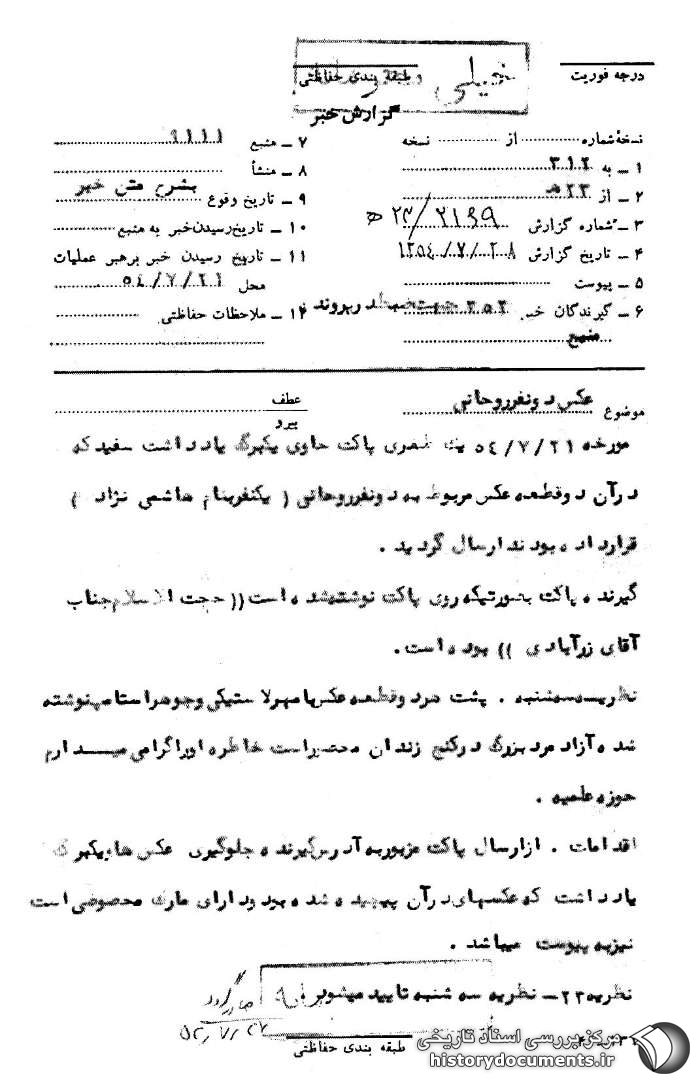 درجه فوریت
طبقه بندی حفاظتی
خیلی
گزارش خبر
نسخهٔ شماره از نسخه
۱ ـ به ۳۱۲
۲ ـ از ۲۳ هـ
۳ ـ شماره گزارش ۲۱۶۹/۲۳ هـ
۴ ـ تاریخ گزارش ۱۳۵۴/۷/۲۸
۵ ـ پیوست
۶ ـ گیرندگان خبر ۳۵۲ در پروند
منبع
۷ ـ منبع ۹۱۱۱
۸ ـ منشأ
۹ ـ تاریخ وقوع بشرح متن خبر
۱۰ ـ تاریخ رسیدن خبر به منبع
۱۱ ـ تاریخ رسیدن خبر برهبر عملیات
محل ۵۴/۷/۲۱
۱۲ ـ ملاحظات حفاظتی
موضوع عکس دونفرروحانی
عطف
پیرو
مورخه ۵۴/۷/۲۱ یک پاکت حاوی یکبرگ یادداشت سفید که
درآن دوقطعه عکس مربوط به دونفرروحانی ( یکنفربنام هاشمی نژاد )
قرارداده بودند ارسال گردید .
گیرنده پاکت بصورتیکه روی پاکت نوشته‌شده است (( حجت الاسلام جناب
آقای زرآبادی )) بوده است .
نظریه سه‌شنبه . پشت هردوقطعه عکس با مهرلاستیکی وجوهراستامپ نوشته
شده آزاد مرد بزرگ درکنج زندان محصوراست خاطره اوراگرامی میدارم
حوزه علمیه .
اقدامات . ازارسال پاکت مزبوربه آدرس گیرنده جلوگیری عکس ها ویکبرگ
یادداشت که عکسهای درآن پیچیده شده بود ودارای مارک مخصوصی است
نیزبه پیوست میباشد .
نظریه ۲۳ ـ نظریه سه شنبه تایید میشود .
۵۴/۷/۲۷
طبقه بندی حفاظتی
مرکز بررسی اسناد تاریخی
historydocuments.ir